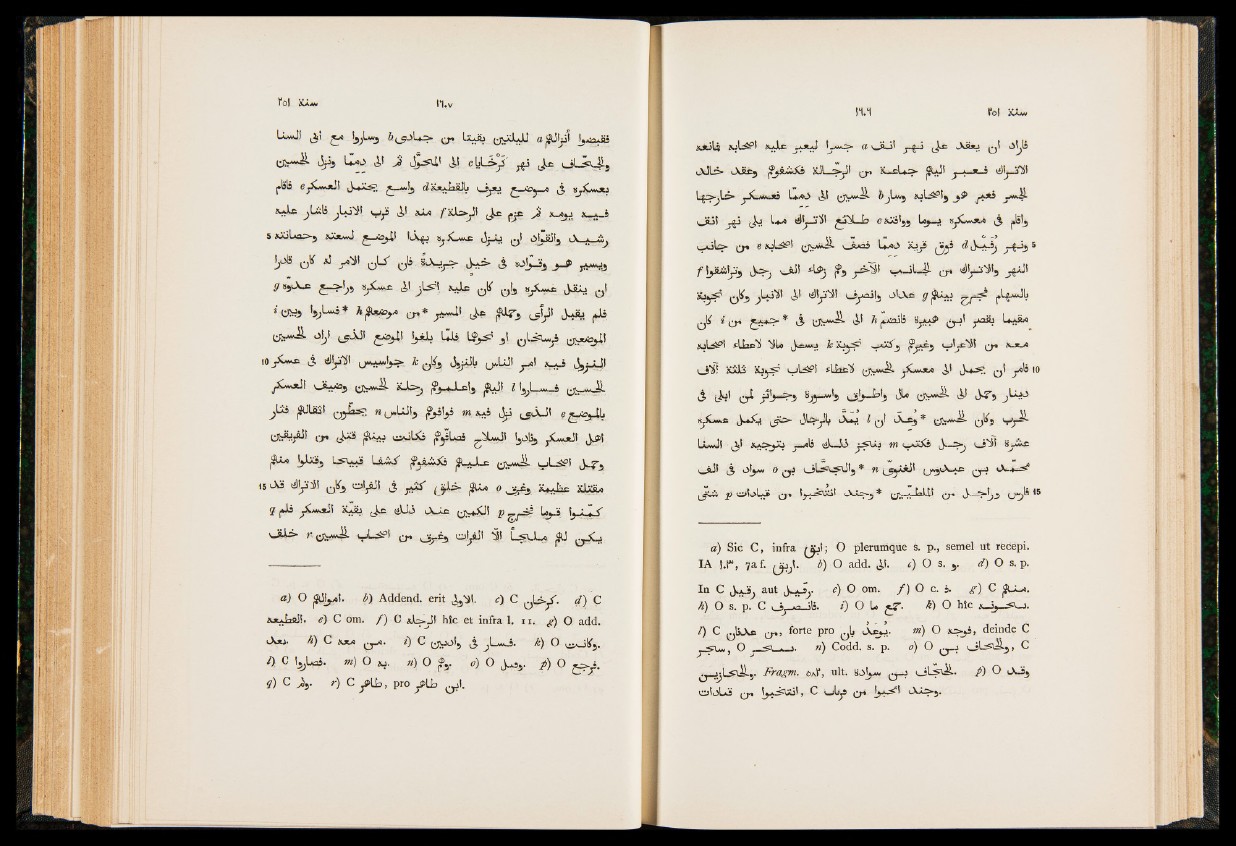 سنة ٢٥١ ١٦٠٦
فاراد ان يعقد على نهر انـق a جسرا ليعبر عليه اصحابه فمانعه
الاتـراك فـعـبـر اليهم جماعـة من الرجّـالـة فكشفوهم وعقد خـالـد
الجسر فعبر هو واصحابه وسار b الحسين الى دِممّا فعسكر خارجها
واقام فى معسكره يومـا ووافته c طـلائع الاتراك مما يلى نهر انق
5 ونهـر رُفَـيـل d فوق قرية دممّا فصفّ الحسين اصحابه e من جانب
النهر والاتـراك من الجـانـب الآخر وهم زهاء الف رجل وتراشقوا f
بالسهام فجرح بينهم g عداد وانصرف الاتراك الى الانبار وكان نجوبة
مقيما بقصر ابـن هبيرة فانضمّ h الى الحسين فى * جميع من i كان
معـه من الاعراب وغيرهم وكتب نجوبة k يسعل مالا لاعطاء اصحابه
10 فامر ان يحمـل الى معسكر الحسين لاعطاء اصحاب نجوبة ثلثة آلاف
دينار وحمل الى الحسين مال واطـواق واسـورة وجـوائز لمن ابلى فى
الحرب وكان الحسين *وُعـد ان l يُمَدّ بالرجال حتى يكمـل عسكره
عشرة آلاف رجـل فكتب m ينجز ذلـك فامـر بتوجيه ابى السنا
محمّـد بـن عبـدوس الغنوىّ n *والجحّـاف o بن سواد فى الف
15 فارس وراجـل من الملطـيّـين *وجنـد انتُخبـوا من قيادات p شتّى
a) Sic C, infra ابق; O plerumque s. p., semel ut recepi.
IA ١٠٣, 7 a f. اربق. b) O add. الى. c) O s. و. d) O s. p.
In C رقيل aut رقيـل. e) O om. f) O c. ف. g) C منهم.
h) O s. p. C فانصرف. i) O جمع ما. k) O hic
l) C من, forte pro بان. m) O فوجه, deinde C
O n) Codd. s. p. o) O والحجاف بـن, C
Fragm. ٥٨٣, ult. الجحّاف بـن سوادة. p) O وقد
انتخبوا من قيادات, C وجند انحبوا من
سنة ٢٥١ ١٦٠٧
فقبضوا أنزالهم a لليلتين بقيتا من جمادى b وساروا مع ابى السنا
والجحّـاف على نهر كَرْخَايا c الى المحوّل ثم الى دِممّا ونزل الحسين
بعسكره فى موضـع يعرف بالقطيعة d واسع يحتمل العسكر e فاقام
فـيـه يومـه ثم عزم على الرحلة f منه الى قرب الانبار فاشار عليه
5 رشـيـد والقوّاد ان ينزل عسكره بهذا الموضع لسعته وحصانته
ويسير هو وقـوّاده فى خيل جريـدة فان كـان الامر له كان قادرا
ان ينقل عسكره وان كان عليه انحاز الى عسكره وراجع عـدوّه g
فلم يقبل الرأى وحملهم على المسير *من موضعهم h *فساروا وبين i
الموضعين فرسخان او نحوهما فلما بلغوا الموضع الذى اراد الحسين
10 النـزول فيه امـر الناس بالنزول وكان k جواسيس الاتراك فى عسكر
الحسين فسـاروا l اليهم واعلموهم رحلة الحسين وضيف العسكر
بالموضع e الـذى نزل فيه m فوافوهم والناس n يحطّون اثقالهم فثار
اهل العسكر ونادوا السلاح فصافّوهم فكانت بينهم قتلى من الفريقين
وحمل اصحاب الحسين عليهم فكشفوهم كشفا قبيحا وقتلوا منهم
15 مقتلة عظيمة وغرق o منهم خلق كثير فى الفرات وكان الاتراك قد
كمّنـوا قوما فخرج p الكمين عنـد ذلـك على بقيّة العسكر فلم q
يكـن لهم ملجـأ الّا الفرات وغـرق من اصحاب الحسين r خلق
a) O اموالهم. b) Addend. erit الاولى. c) C كرخان. d) C
العطيعة. e) C om. f) C الرجلة hic et infra l. 11. g) O add.
بعد. h) C مـن معه. i) C فـسـار فى. k) O وكانـت.
l) C فصاروا. m) O به. n) O وهم. o) O وقتل. p) O فرجع.
q) C ولم. r) C طاهر, pro ابن طاهر.